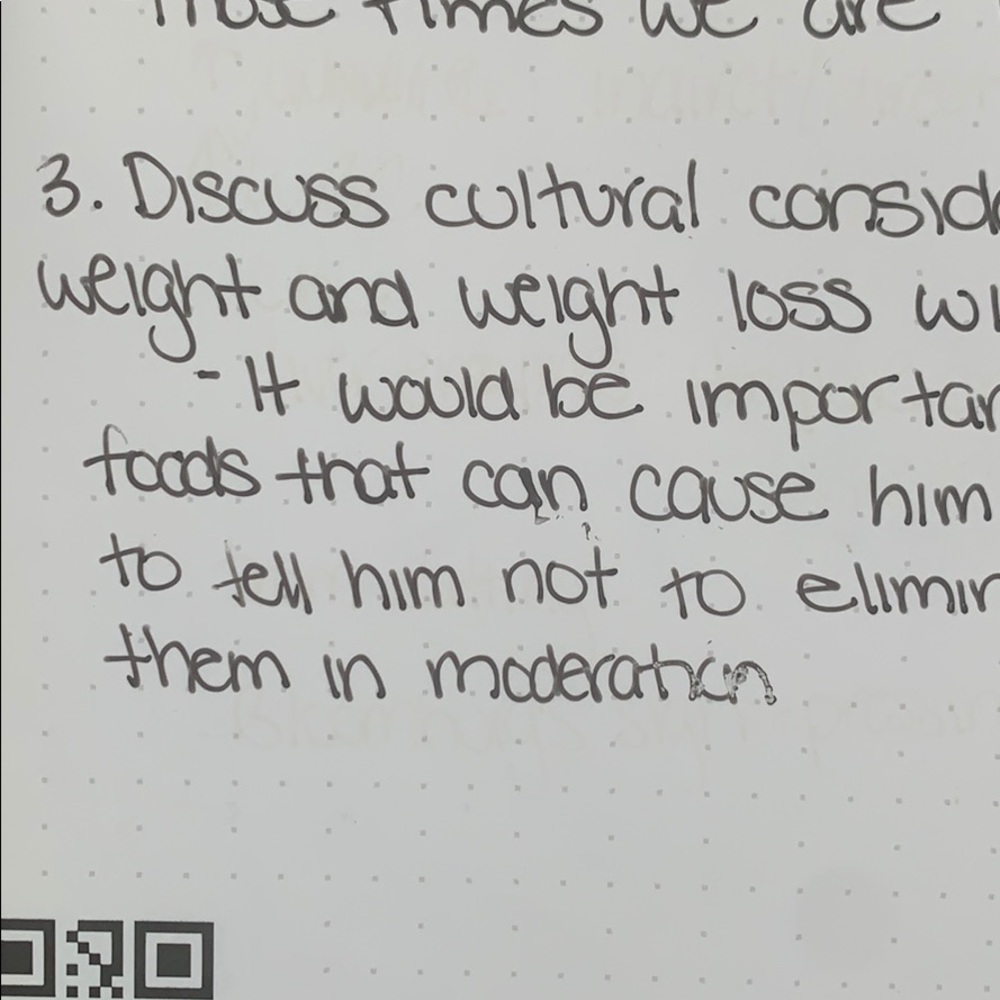 those times we are
3. Discuss cultural consid
weight and weight loss wi
- It would be importan
foods that can cause him
to tell him not to elimin
them in moderation